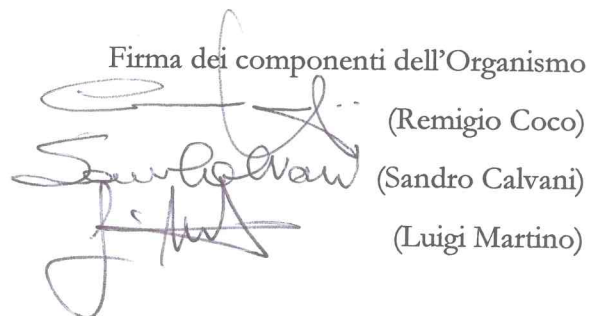 Firma dei componenti dell'Organismo
(Remigio Coco)
Sandro Calvani (Sandro Calvani)
(Luigi Martino)